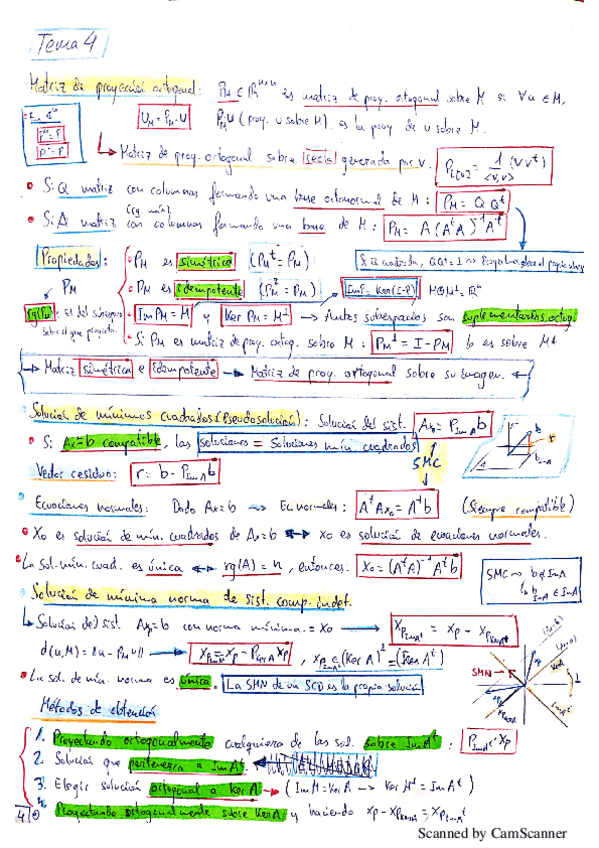 Tema 4
Matriz de proyección ortogonal: P_M ∈ ℝ^{n×n} es matriz de proy. ortogonal sobre M si ∀u ∈ M,
U_M = P_M · U
P_M u (proy. u sobre M) es la proy de u sobre M.
Matriz de proy. ortogonal sobre recta generada por v. P_{L{v}} = 1/<v,v> (v v^t)
• Si Q matriz con columnas formando una base ortonormal de M: P_M = Q Q^t
• Si A matriz con columnas formando una base de M: P_M = A (A^t A)^{-1} A^t
Propiedades: • P_M es simétrica (P_M^t = P_M)
Si Q cuadrada, QQ^t = I
P_M • P_M es idempotente (P_M^2 = P_M)
Im P = Ker (I-P)
M⊕M^⊥ = ℝ^n
• Im P_M = M y Ker P_M = M^⊥ → Ambos subespacios son suplementarios ortog.
• Si P_M es matriz de proy. ortog. sobre M: P_{M^⊥} = I - P_M lo es sobre M^⊥
→ Matriz simétrica e idempotente → Matriz de proy. ortogonal sobre su imagen. ←
Solución de mínimos cuadrados (Pseudosolución): Solución del sist. Ax = P_{ImA} b
• Si Ax=b compatible, las soluciones = Soluciones mín. cuadrados
SMC
Vector residuo: r = b - P_{ImA} b
• Ecuaciones normales: Dado Ax=b → Ec. normales: A^t A x_0 = A^t b (Siempre compatible)
• X_0 es solución de mín. cuadrados de Ax=b ↔ x_0 es solución de ecuaciones normales.
• La sol. mín. cuad. es única ↔ rg(A) = n, entonces. X_0 = (A^t A)^{-1} A^t b
SMC → b ∉ Im A
b_{ImA} ∈ Im A
Solución de mínima norma de sist. comp. indet.
↳ Solución del sist. Ax=b con norma mínima = X_0 → X_{P_{ImA^t}} = x_p - x_{P_{KerA}}
d(u,M) = ‖u - P_M u‖ → x_{P_{ImA^t}} = x_p - P_{KerA} x_p , x_{P_{ImA^t}} ∈ (Ker A)^⊥ =
SMN
• La sol. de mín. norma es única. La SMN de un SCD es la propia solución
Métodos de obtención
1. Proyectando ortogonalmente cualquiera de las sol. sobre Im A^t: P_{ImA^t} · x_p
2. Solución que pertenezca a Im A^t
3. Elegir solución ortogonal a Ker A → (Im M = Ker A → Ker M^t = Im A^t)
4. Proyectando ortogonalmente sobre Ker A y haciendo x_p - x_{P_{KerA}} = x_{P_{ImA^t}}
Scanned by CamScanner